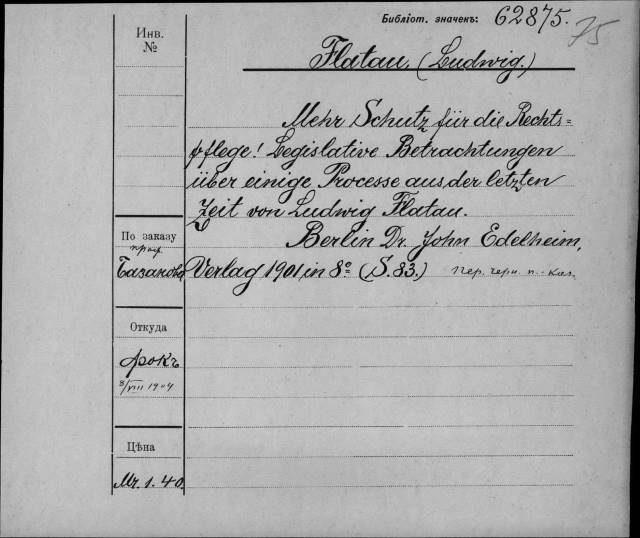 Библіот. значекъ: 62875.
75
Инв.
№
Flatau, (Ludwig.)
Mehr Schutz für die Rechts=
pflege! Legislative Betrachtungen
über einige Processe aus der letzten
Zeit von Ludwig Flatau.
По заказу
проф.
Базанова
Berlin Dr. John Edelheim,
Verlag 1901, in 8° (S. 83.) пер. черн. п.-кал.
Откуда
Фокъ
8/VIII 1904
Цѣна
Mr. 1.40.